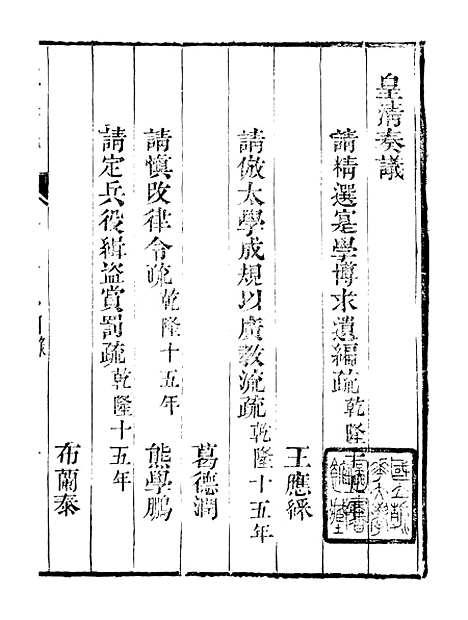 皇清奏議
請精選寔學博求遺編疏乾隆十五年
王應綵
請倣太學成規以廣敎流疏乾隆十五年
葛德潤
請愼改律令疏乾隆十五年
熊學鵬
請定兵役緝盜賞罰疏乾隆十五年
布蘭泰
目錄